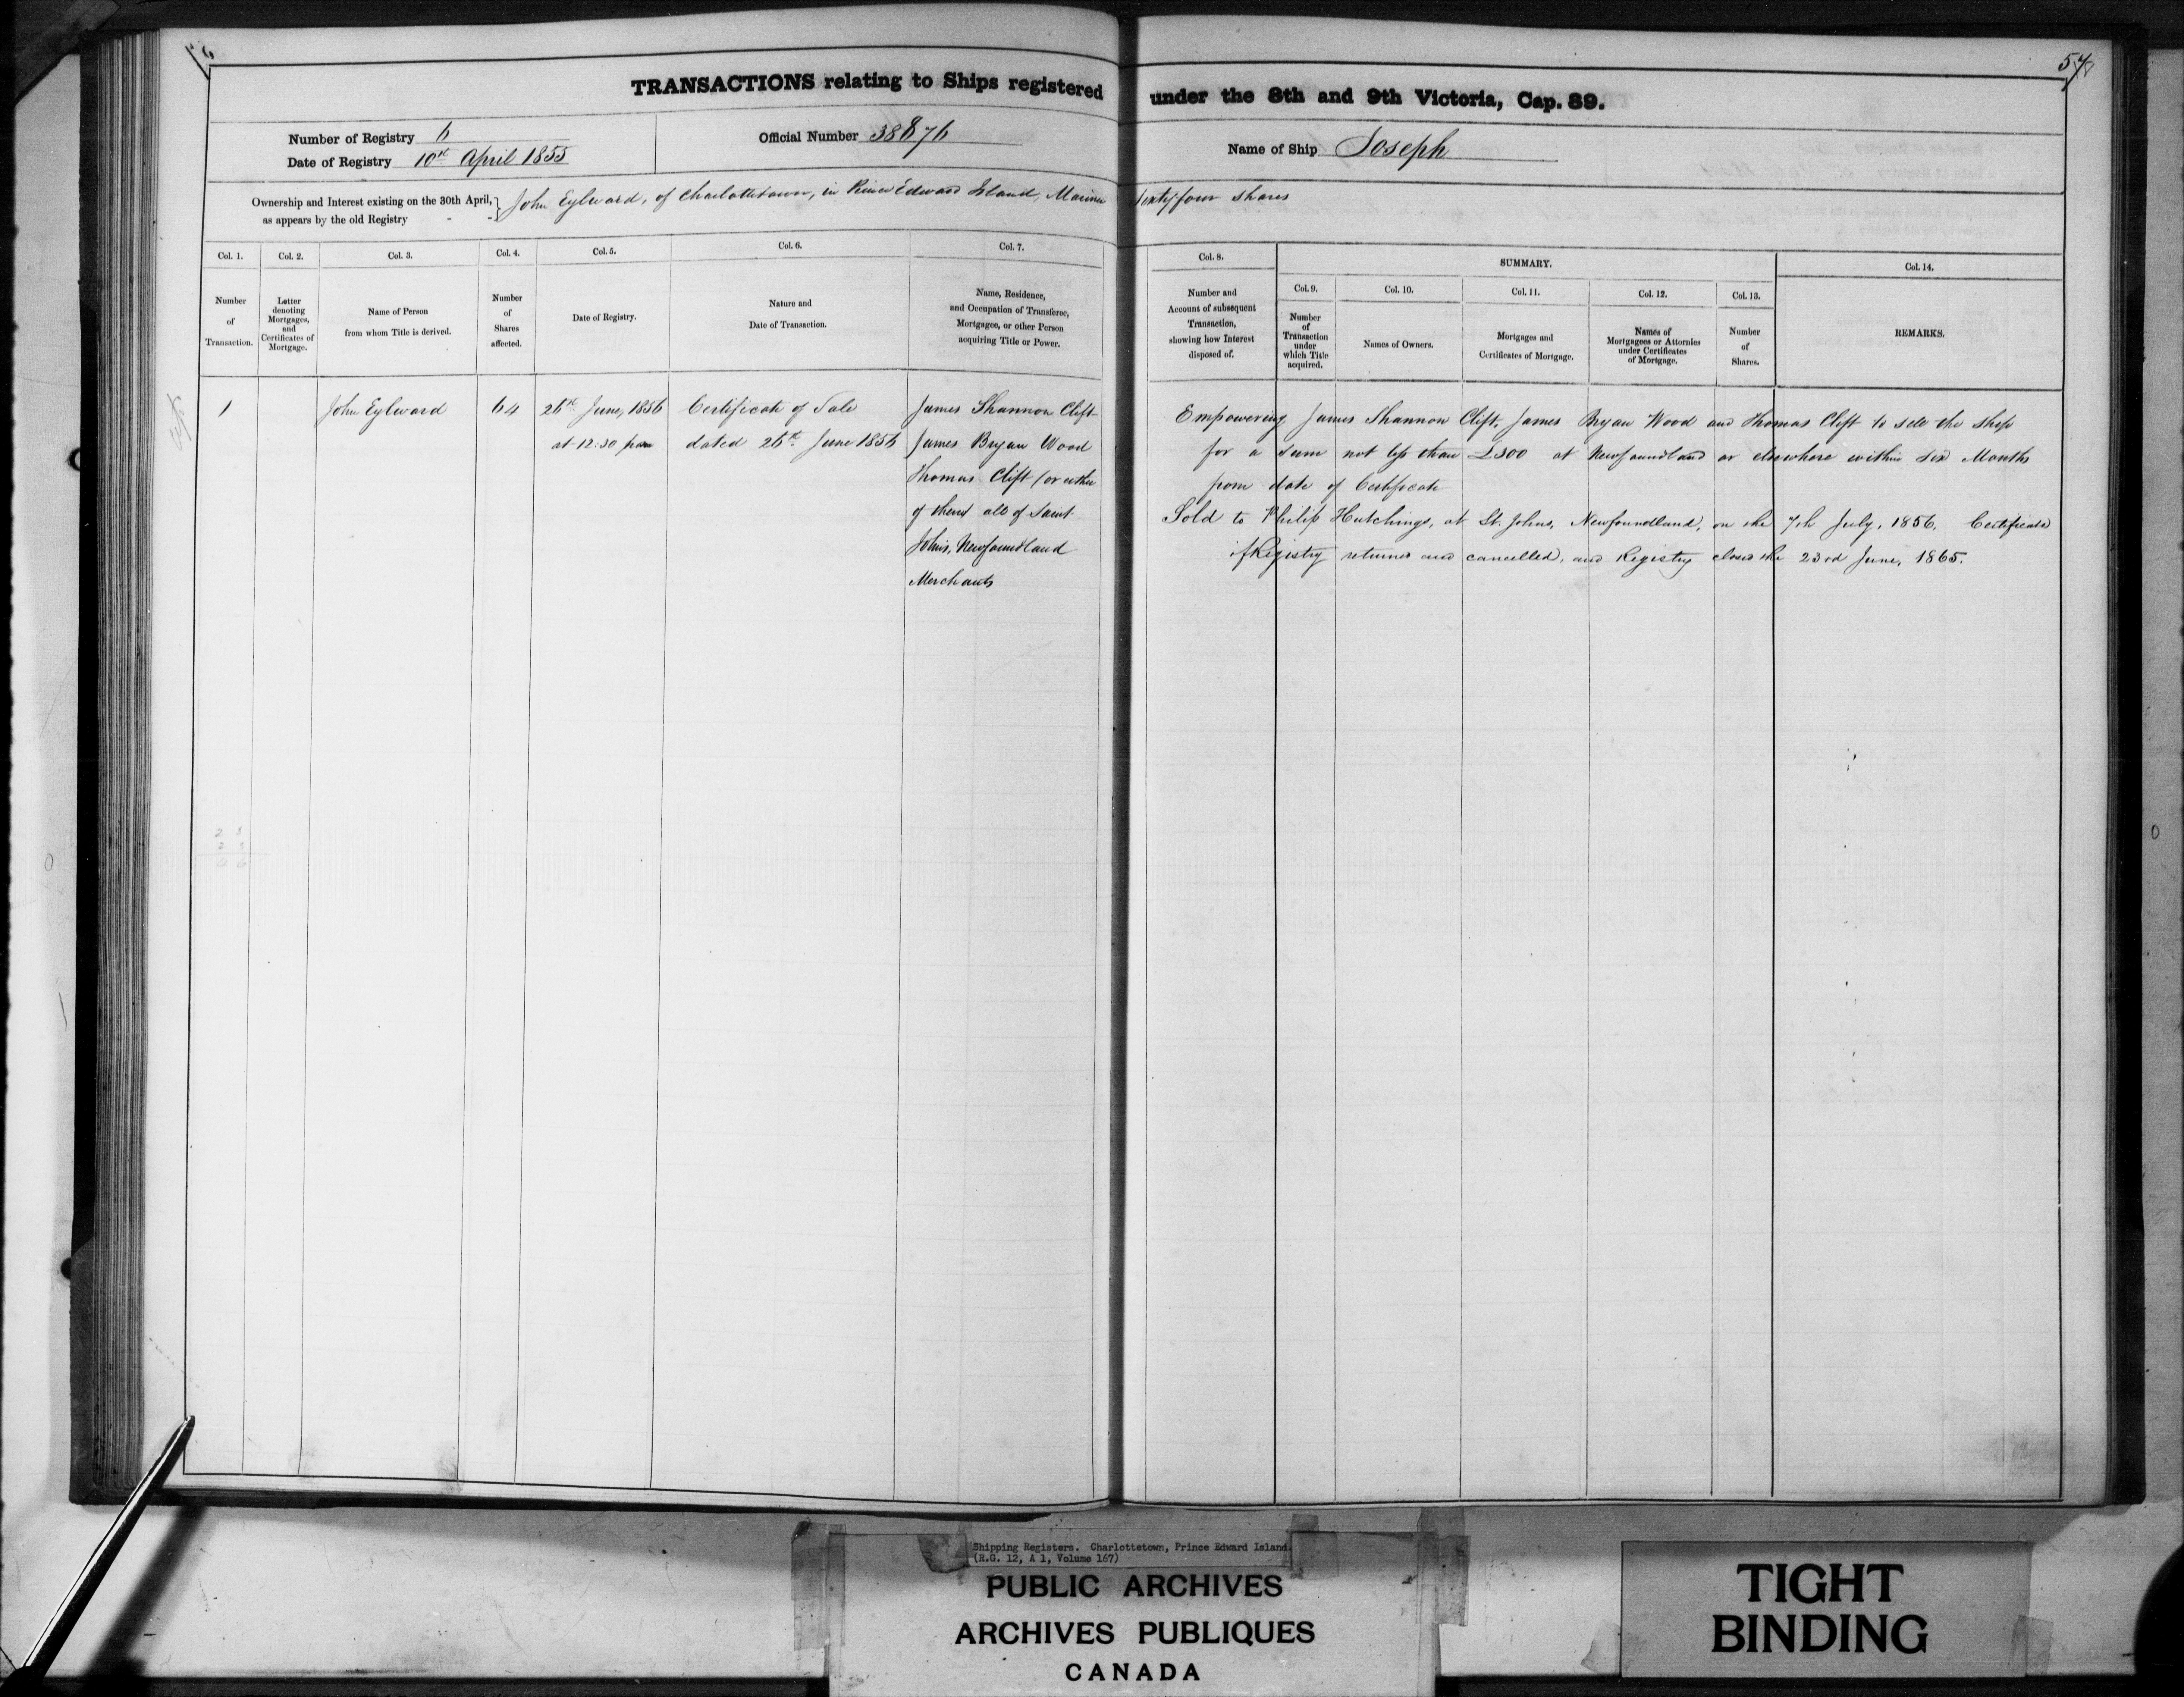 57
TRANSACTIONS relating to Ships registered under the 8th and 9th Victoria, Cap. 89.
Number of Registry 6
Date of Registry 10th April 1855
Official Number 38876
Name of Ship Joseph
Ownership and Interest existing on the 30th April, as appears by the old Registry - - } John Eylward, of Charlottetown, in Prince Edward Island, Mariner Sixty four Shares
Col. 1.
Number
of
Transaction.
Col. 2.
Letter
denoting
Mortgages,
and
Certificates of
Mortgage.
Col. 3.
Name of Person
from whom Title is derived.
Col. 4.
Number
of
Shares
affected.
Col. 5.
Date of Registry.
Col. 6.
Nature and
Date of Transaction.
Col. 7.
Name, Residence,
and Occupation of Transferee,
Mortgagee, or other Person
acquiring Title or Power.
Col. 8.
Number and
Account of subsequent
Transaction,
showing how Interest
disposed of.
SUMMARY.
Col. 9.
Number
of
Transaction
under
which Title
acquired.
Col. 10.
Names of Owners.
Col. 11.
Mortgages and
Certificates of Mortgage.
Col. 12.
Names of
Mortgagees or Attornies
under Certificates
of Mortgage.
Col. 13.
Number
of
Shares.
Col. 14.
REMARKS.
1
John Eylward
64
26th June, 1856
at 12:30 pm
Certificate of Sale
dated 26th June 1856
James Shannon Clift
James Bryan Wood
Thomas Clift (or either
of them) all of Saint
John's, Newfoundland
Merchants
Empowering James Shannon Clift, James Bryan Wood and Thomas Clift to sell the Ship
for a sum not less than £300 at Newfoundland or elsewhere within six Months
from date of Certificate
Sold to Philip Hutchings, at St. Johns, Newfoundland, on the 7th July, 1856. Certificate
of Registry returned and cancelled, and Registry closed the 23rd June, 1865.
Shipping Registers. Charlottetown, Prince Edward Island.
(R.G. 12, A 1, Volume 167)
PUBLIC ARCHIVES
ARCHIVES PUBLIQUES
CANADA
TIGHT
BINDING